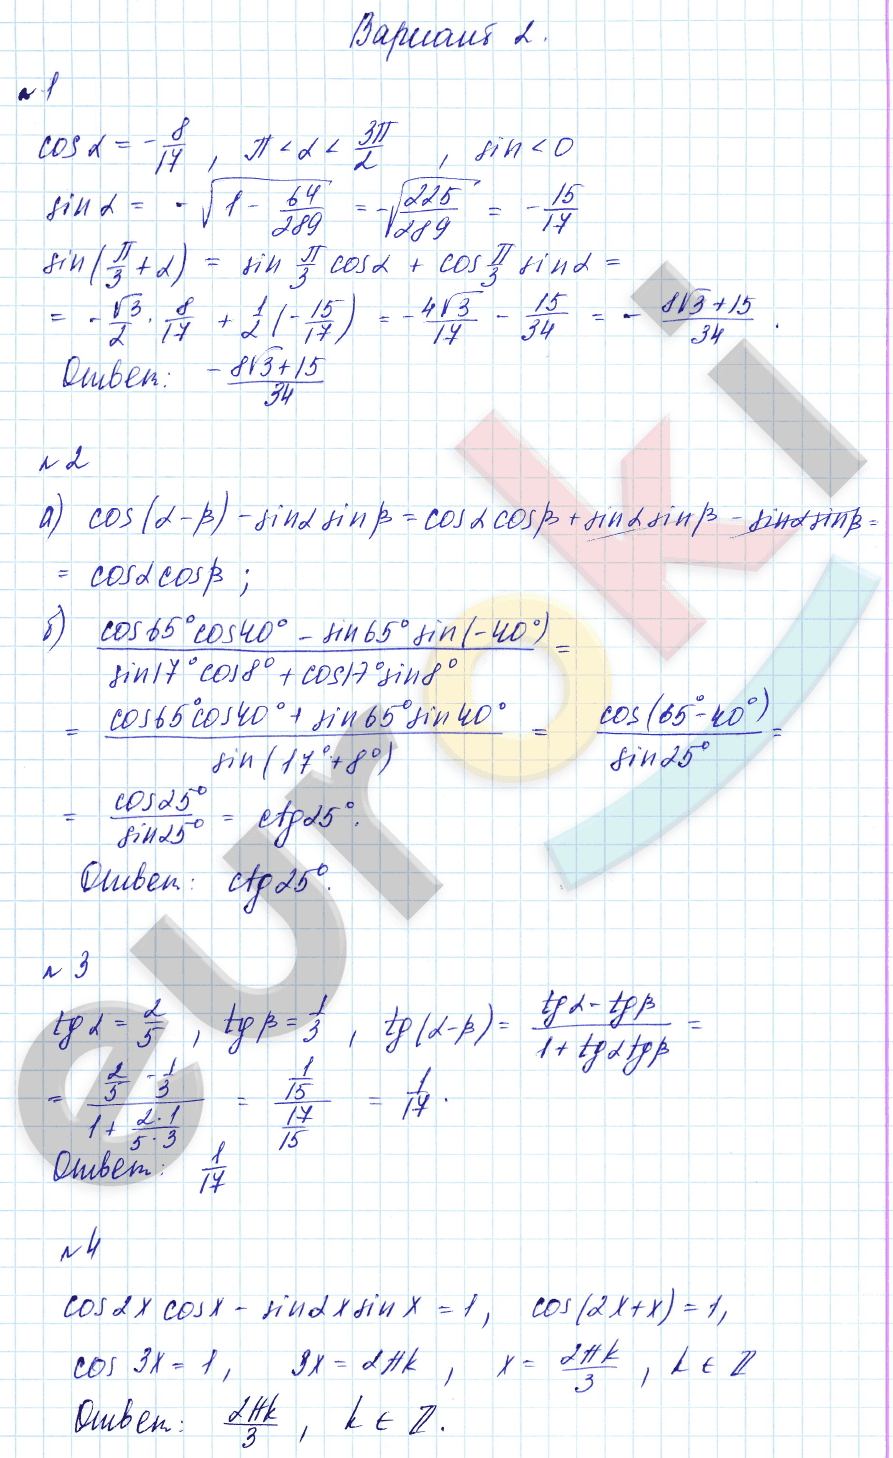 Вариант 2.
№1
cos α = - 8/17 , π < α < 3π/2 , sin < 0
sin α = - √(1 - 64/289) = -√(225/289) = - 15/17
sin(π/3 + α) = sin π/3 cos α + cos π/3 sin α =
= - √3/2 · 8/17 + 1/2 (- 15/17) = - 4√3/17 - 15/34 = - (8√3+15)/34 .
Ответ: - (8√3+15)/34
№2
а) cos(α-β) - sinα sinβ = cosα cosβ + sinα sinβ - sinα sinβ =
= cosα cosβ ;
б) (cos65° cos40° - sin65° sin(-40°))/(sin17° cos8° + cos17° sin8°) =
= (cos65° cos40° + sin65° sin40°)/(sin(17°+8°)) = cos(65°-40°)/sin25° =
= cos25°/sin25° = ctg25°.
Ответ: ctg25°.
№3
tgα = 2/5 , tgβ = 1/3 , tg(α-β) = (tgα - tgβ)/(1 + tgα tgβ) =
= (2/5 - 1/3)/(1 + (2·1)/(5·3)) = (1/15)/(17/15) = 1/17 .
Ответ: 1/17
№4
cos2x cosx - sin2x sinx = 1, cos(2x+x) = 1,
cos 3x = 1, 3x = 2πk , x = 2πk/3 , k ∈ Z
Ответ: 2πk/3 , k ∈ Z.
euroki